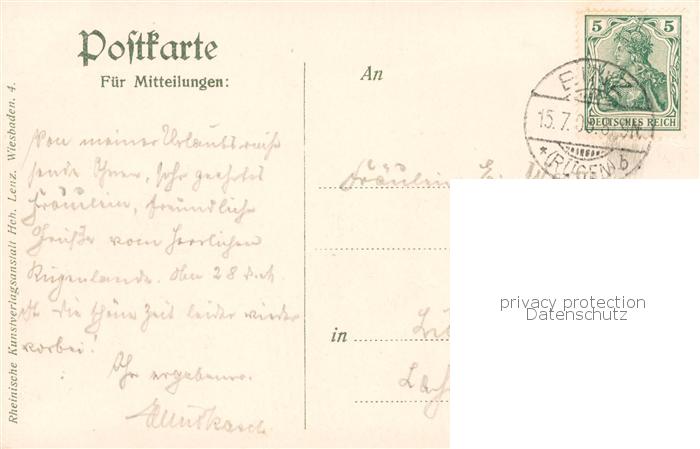 Postkarte
Für Mitteilungen:
An
5 5
DEUTSCHES REICH
BINZ
15.7.
*(RÜGEN) b
Von meiner Urlaubsreise
sende Ihnen, sehr geehrtes
Fräulein, freundliche
Grüße vom herrlichen
Rügenlande. Am 28 d. M.
ist die schöne Zeit leider wieder
vorbei!
Ihr ergebener
Fräulein E.
in
Rheinische Kunstverlagsanstalt Hch. Lenz. Wiesbaden. 4.
privacy protection
Datenschutz